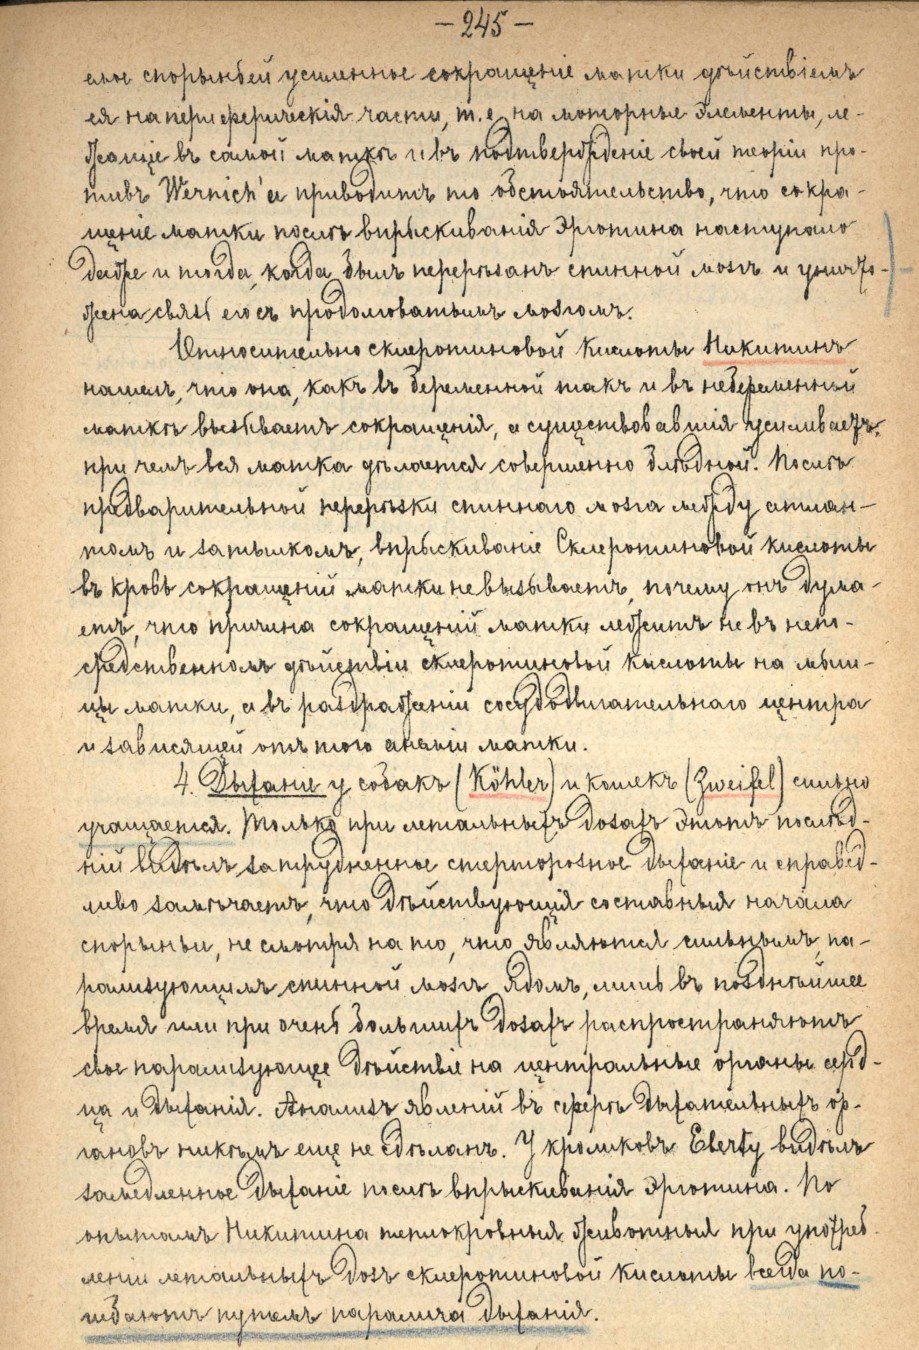 — 245 —
емое спорыньей усиленное сокращеніе матки дѣйствіемъ
ея на периферическія части, т. е. на моторные элементы, ле-
жащіе въ самой маткѣ и въ подтвержденіе своей теоріи про-
тивъ Wernich'а приводитъ то обстоятельство, что сокра-
щеніе матки послѣ впрыскиванія Эрготина наступало
даже и тогда, когда былъ перерѣзанъ спинной мозгъ и уничто-
жена связь его съ продолговатымъ мозгомъ.
Относительно склеротиновой кислоты Никитинъ
нашелъ, что она, какъ въ беременной такъ и въ небеременной
маткѣ вызываетъ сокращенія, а существовавшія усиливаетъ,
при чемъ вся матка дѣлается совершенно блѣдной. Послѣ
предварительной перерѣзки спиннаго мозга между атлан-
томъ и затылкомъ, впрыскиваніе Склеротиновой кислоты
въ кровь сокращеній матки не вызываетъ, почему онъ дума-
етъ, что причина сокращеній матки лежитъ не въ непо-
средственномъ дѣйствіи склеротиновой кислоты на мыш-
цы матки, а въ раздраженіи сосудодвигательнаго центра
и зависящей отъ того анэміи матки.
4. Дыханіе у собакъ (Köhler) и кошекъ (Zweifel) сильно
учащается. Только при летальныхъ дозахъ этотъ послѣд-
ній видѣлъ затрудненное стерторозное дыханіе и справед-
ливо замѣчаетъ, что дѣйствующія составныя начала
спорыньи, не смотря на то, что являются сильнымъ, па-
рализующимъ спинной мозгъ ядомъ, лишь въ позднѣйшее
время или при очень большихъ дозахъ распространяютъ
свое парализующее дѣйствіе на центральные органы серд-
ца и дыханія. Анализъ явленій въ сферѣ дыхательныхъ ор-
гановъ никѣмъ еще не сдѣланъ. У кроликовъ Eberty видѣлъ
замедленное дыханіе послѣ впрыскиванія эрготина. По
опытамъ Никитина теплокровныя животныя при употреб-
леніи летальныхъ дозъ склеротиновой кислоты всегда по-
гибаютъ путемъ паралича дыханія.